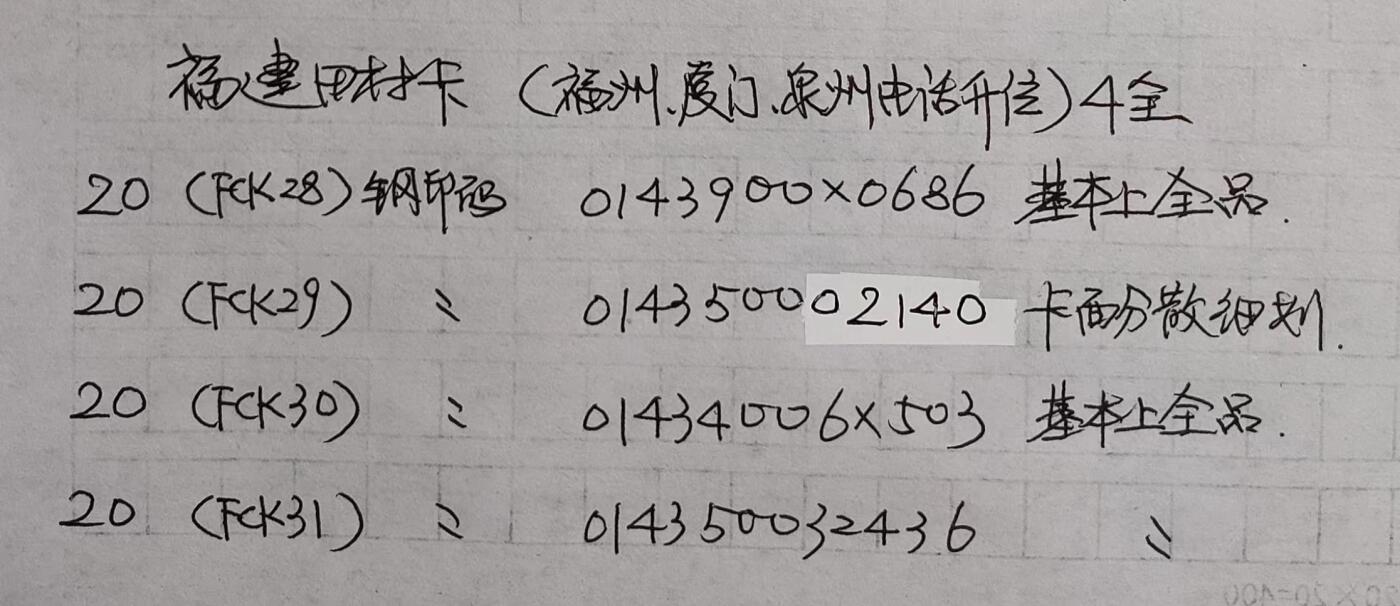 福建田村卡 (福州.厦门.泉州电话升位) 4全
20 (FCK28) 钢印码 0143900×0686 基本上全品.
20 (FCK29) 〃 014350002140 卡面分散细划.
20 (FCK30) 〃 01434006×503 基本上全品.
20 (FCK31) 〃 014350032436 〃